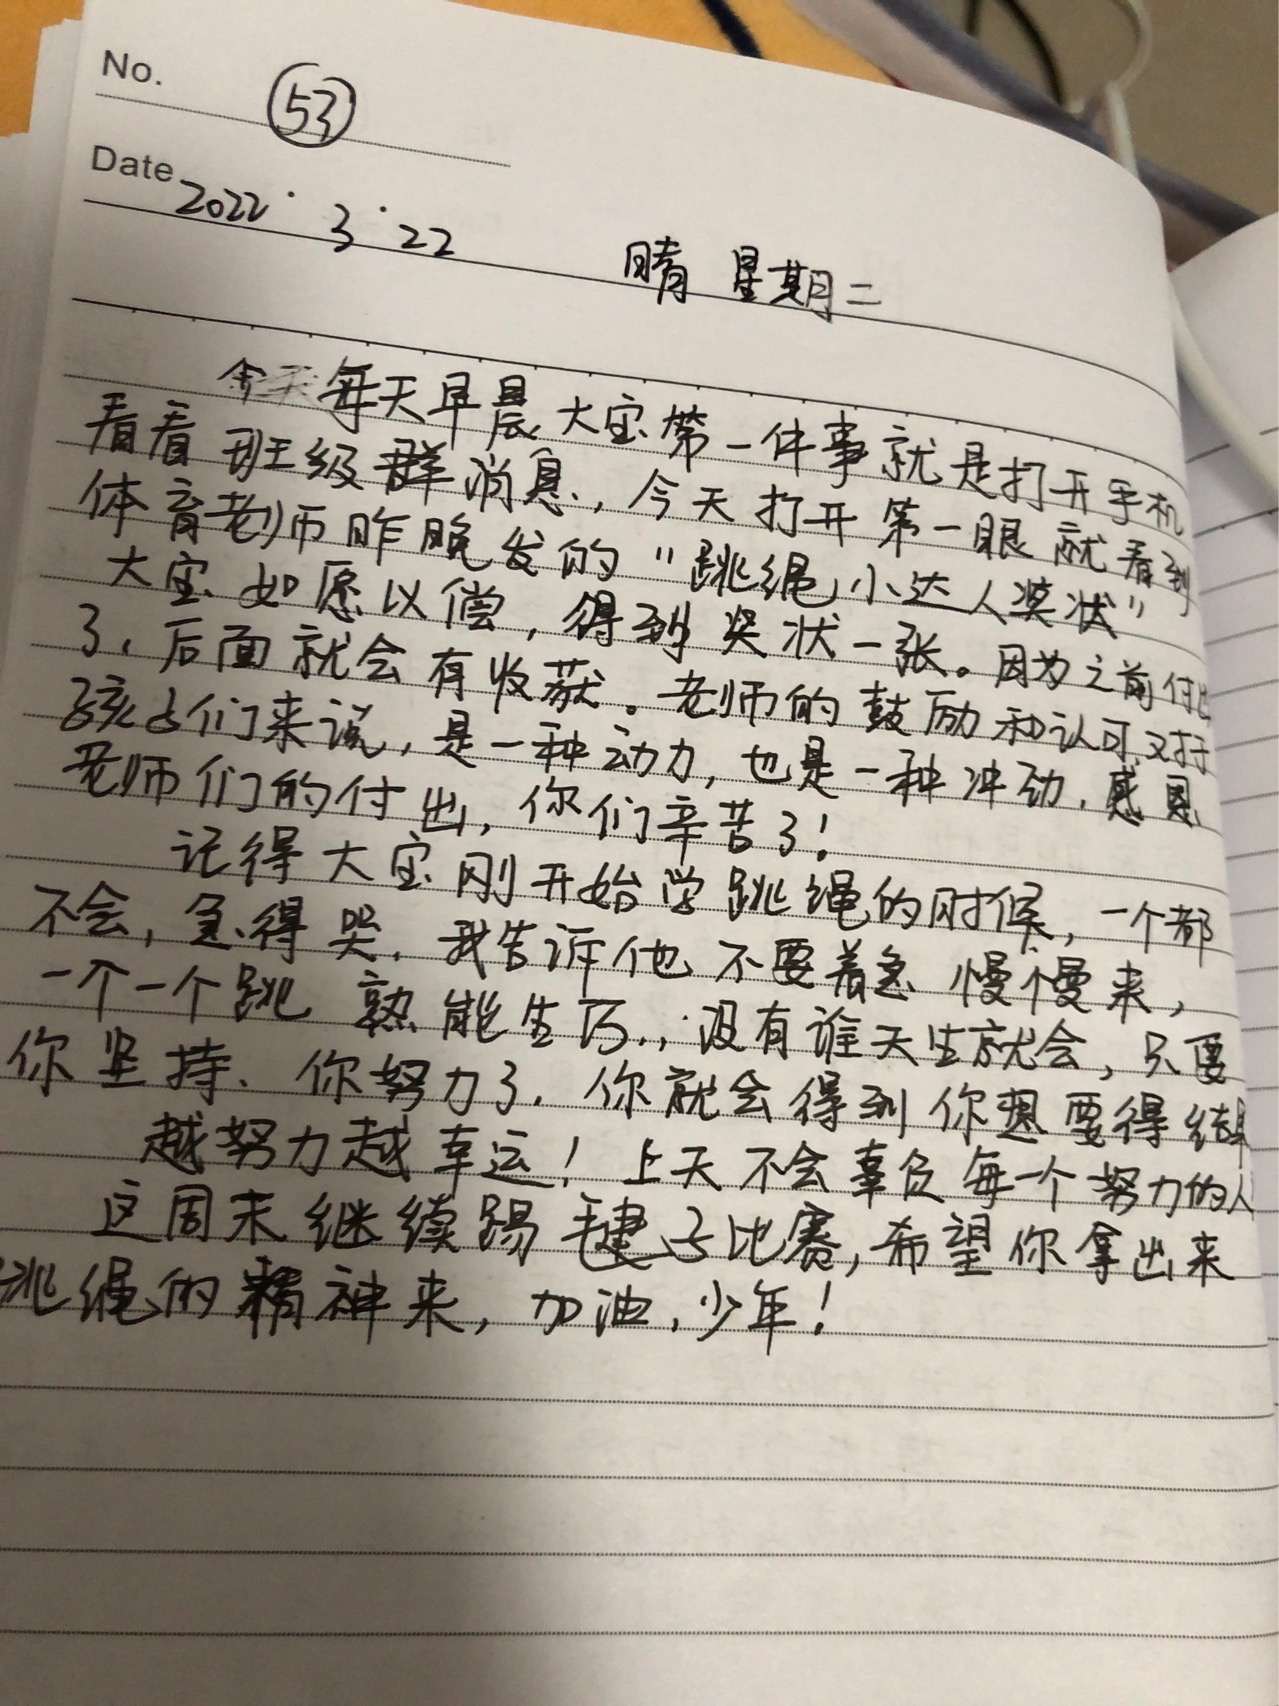 No. 53
Date 2022.3.22 晴 星期二
今天每天早晨大宝第一件事就是打开手机
看看班级群消息,今天打开第一眼就看到
体育老师昨晚发的"跳绳小达人奖状"
大宝如愿以偿,得到奖状一张。因为之前付出
了,后面就会有收获。老师的鼓励和认可,对于
孩子们来说,是一种动力,也是一种冲劲,感恩
老师们的付出,你们辛苦了!
记得大宝刚开始学跳绳的时候,一个都
不会,急得哭,我告诉他不要着急 慢慢来,
一个一个跳 熟能生巧,没有谁天生就会,只要
你坚持、你努力了,你就会得到你想要得结果
越努力越幸运!上天不会辜负每一个努力的人
这周末继续踢毽子比赛,希望你拿出来
跳绳的精神来,加油,少年!